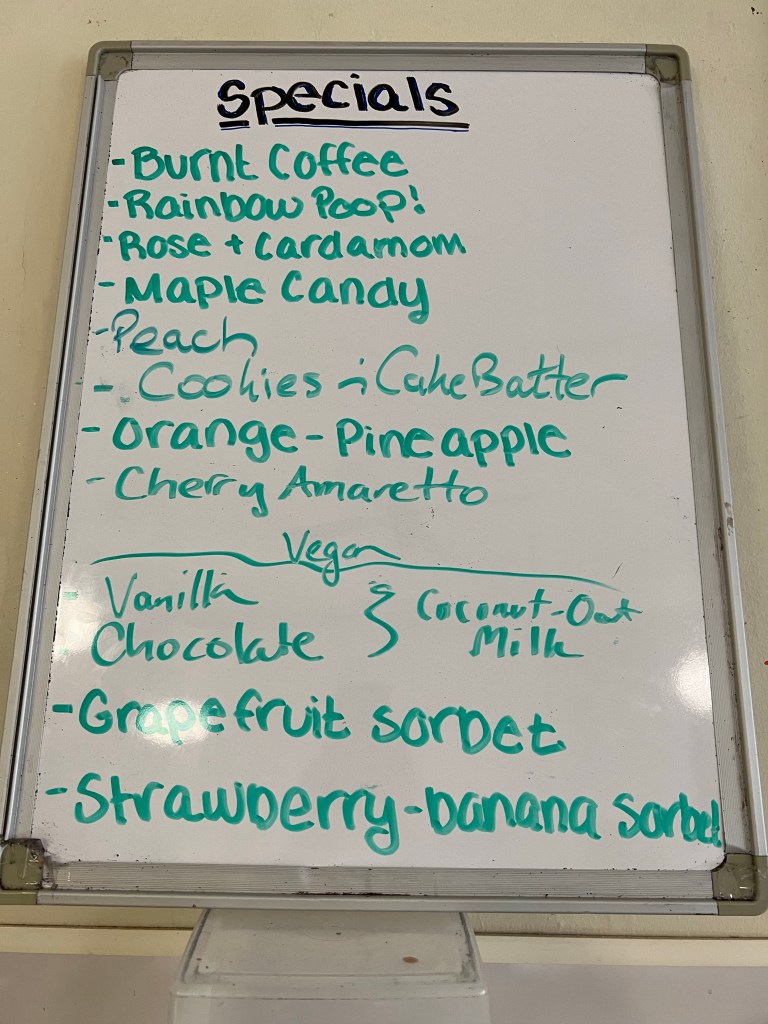 Specials
- Burnt Coffee
- Rainbow Poop!
- Rose + Cardamom
- Maple Candy
- Peach
- Cookies -n' Cake Batter
- Orange - Pineapple
- Cherry Amaretto
Vegan
- Vanilla
- Chocolate } Coconut-Oat Milk
- Grapefruit sorbet
- Strawberry-banana Sorbet